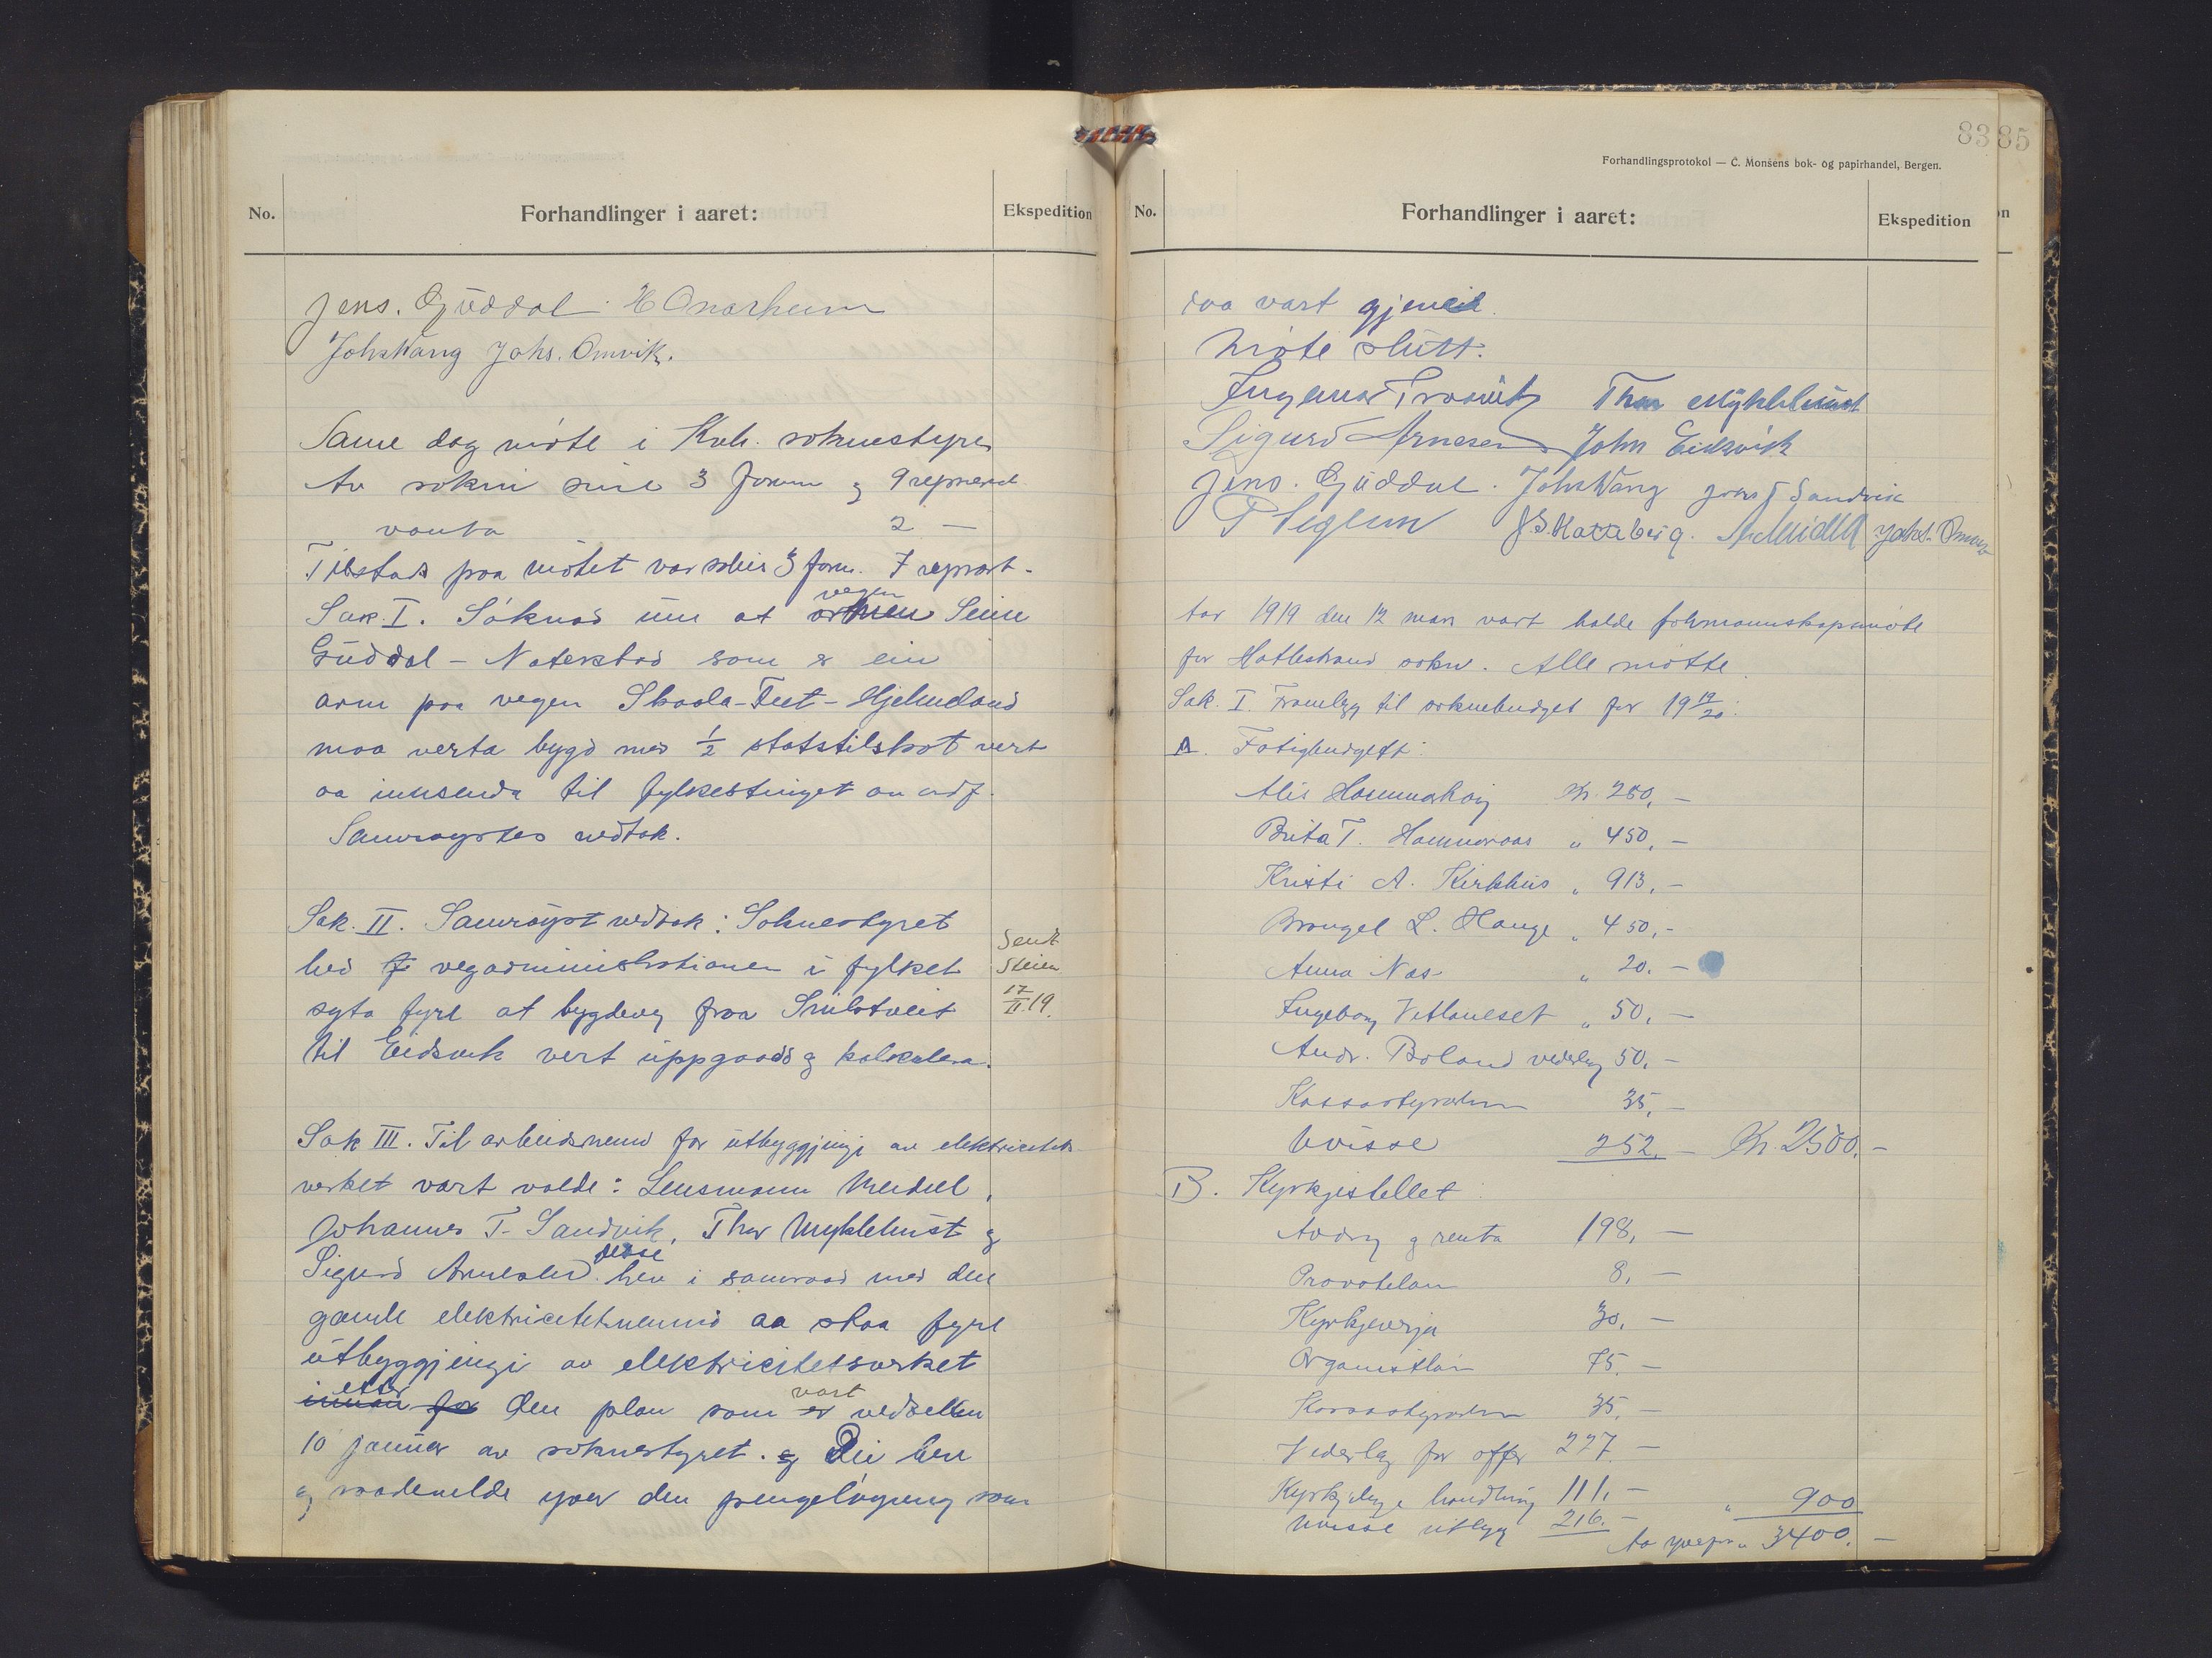 No.
Forhandlinger i aaret:
Ekspedition
Jens. Guddal. H Onarheim
Johs Vang Johs. Omvik.
Same dag møte i Kvh. soknestyre
Av sokni sine 3 form og 9 represent
vanta 2 —
Tilstads paa møtet var soleis 3 form. 7 represt.
Sak. I. Søknad um at vegen Seim
Guddal - Naterstad som er ein
arm paa vegen Skaala - Tveit - Hjelmeland
maa verta bygd med ½ statstilskot vert
aa innsenda til fylkestinget
Samrøystes vedtak.
Sak. II. Samrøyst vedtak: Soknestyret
bed vegadministrationen i fylket
syta fyre at bygdeveg fraa
til Eidsvik vert uppgaadd og kalkulera.
Sendt
Steien
17/II 19.
Sak III. Til arbeidsnemnd for utbyggjingi av elektricitets
verket vart valde: Lensmann
Johannes T. Sandvik, Thor Myklebust og
Sigurd Arnesen. desse hev i samraad med den
gamle elektricitetsnemnd aa staa fyre
utbyggjingi av elektricitetsverket
etter den plan som vart vedteken
10 januar av soknestyret. Dei hev
og raadvelde yver den pengeløyving som
83 85
Forhandlingsprotokol — C. Monsens bok- og papirhandel, Bergen.
No.
Forhandlinger i aaret:
Ekspedition
n
daa vart gjeve
Møte slutt.
Thor Myklebust
Sigurd Arnesen John Eidsvik
Jens. Guddal. Johs Vang Johs T Sandvik
P Seglem J. S. Hatteberg. Johs. Omvik
Aar 1919 den 12 mars vart halde formannskapsmøte
for Hatlestrand sokn. Alle møtte.
Sak. I. Framlegg til soknebudget for 19 19/20.
A. Fatigbudgett:
Alis Hammarhaug Kr. 280, —
Brita T. Hammeraas " 450, —
Kristi A. Kirkhus " 913, —
Brongel L. Hauge " 450, -
Anna Næs " 20. —
Ingeborg Vetlaneset " 50, —
Andr. Boland vederlag 50. —
Kassastyraren 35, —
Uvisse 252. — Kr. 2500, -
B. Kyrkjestellet
Avdrag og renta 198, —
Provstelan 8, —
Kyrkjeverja 30, —
Organistløn 75. —
Kassastyraren 35. —
Vederlag for offer 227. —
Kyrkjelege handling 111. — " 900
Uvisse utlegg 216. —
" 3400. —